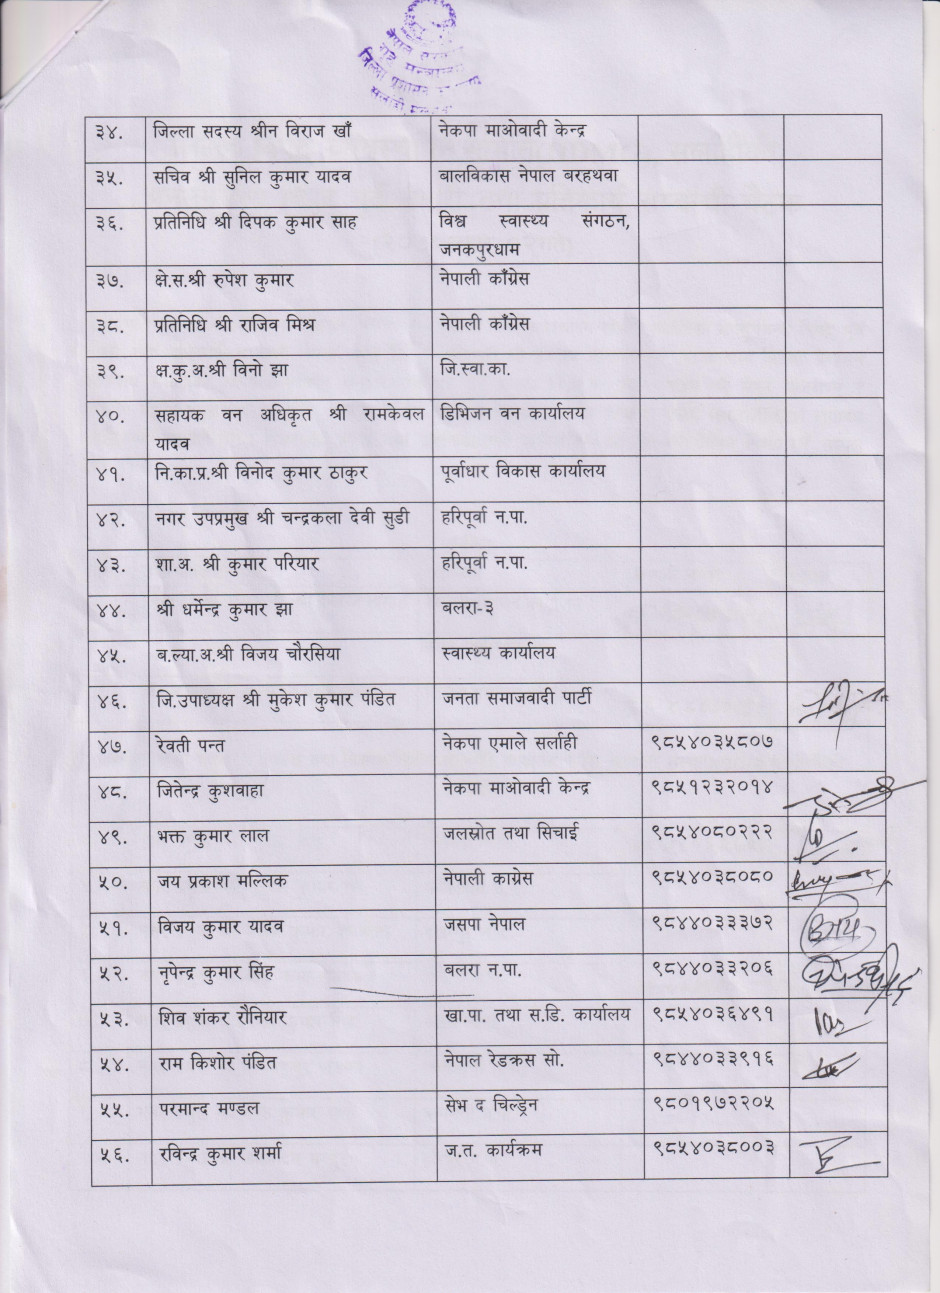 नेपाल
जिल्ला प्रशासन
३४. जिल्ला सदस्य श्रीन विराज खाँ नेकपा माओवादी केन्द्र
३५. सचिव श्री सुनिल कुमार यादव बालविकास नेपाल बरहथवा
३६. प्रतिनिधि श्री दिपक कुमार साह विश्व स्वास्थ्य संगठन,
जनकपुरधाम
३७. क्षे.स.श्री रुपेश कुमार नेपाली काँग्रेस
३८. प्रतिनिधि श्री राजिव मिश्र नेपाली काँग्रेस
३९. क्ष.कु.अ.श्री विनो झा जि.स्वा.का.
४०. सहायक वन अधिकृत श्री रामकेवल डिभिजन वन कार्यालय
यादव
४१. नि.का.प्र.श्री विनोद कुमार ठाकुर पूर्वाधार विकास कार्यालय
४२. नगर उपप्रमुख श्री चन्द्रकला देवी सुडी हरिपूर्वा न.पा.
४३. शा.अ. श्री कुमार परियार हरिपूर्वा न.पा.
४४. श्री धर्मेन्द्र कुमार झा बलरा-३
४५. ब.ल्या.अ.श्री विजय चौरसिया स्वास्थ्य कार्यालय
४६. जि.उपाध्यक्ष श्री मुकेश कुमार पंडित जनता समाजवादी पार्टी
४७. रेवती पन्त नेकपा एमाले सर्लाही ९८५४०३५८०७
४८. जितेन्द्र कुशवाहा नेकपा माओवादी केन्द्र ९८५१२३२०१४
४९. भक्त कुमार लाल जलस्रोत तथा सिचाई ९८५४०८०२२२
५०. जय प्रकाश मल्लिक नेपाली काग्रेस ९८५४०३८०८०
५१. विजय कुमार यादव जसपा नेपाल ९८४४०३३३७२
५२. नृपेन्द्र कुमार सिंह बलरा न.पा. ९८४४०३३२०६
५३. शिव शंकर रौनियार खा.पा. तथा स.डि. कार्यालय ९८५४०३६४९१
५४. राम किशोर पंडित नेपाल रेडक्रस सो. ९८४४०३३९१६
५५. परमान्द मण्डल सेभ द चिल्ड्रेन ९८०१९७२२०५
५६. रविन्द्र कुमार शर्मा ज.त. कार्यक्रम ९८५४०३८००३